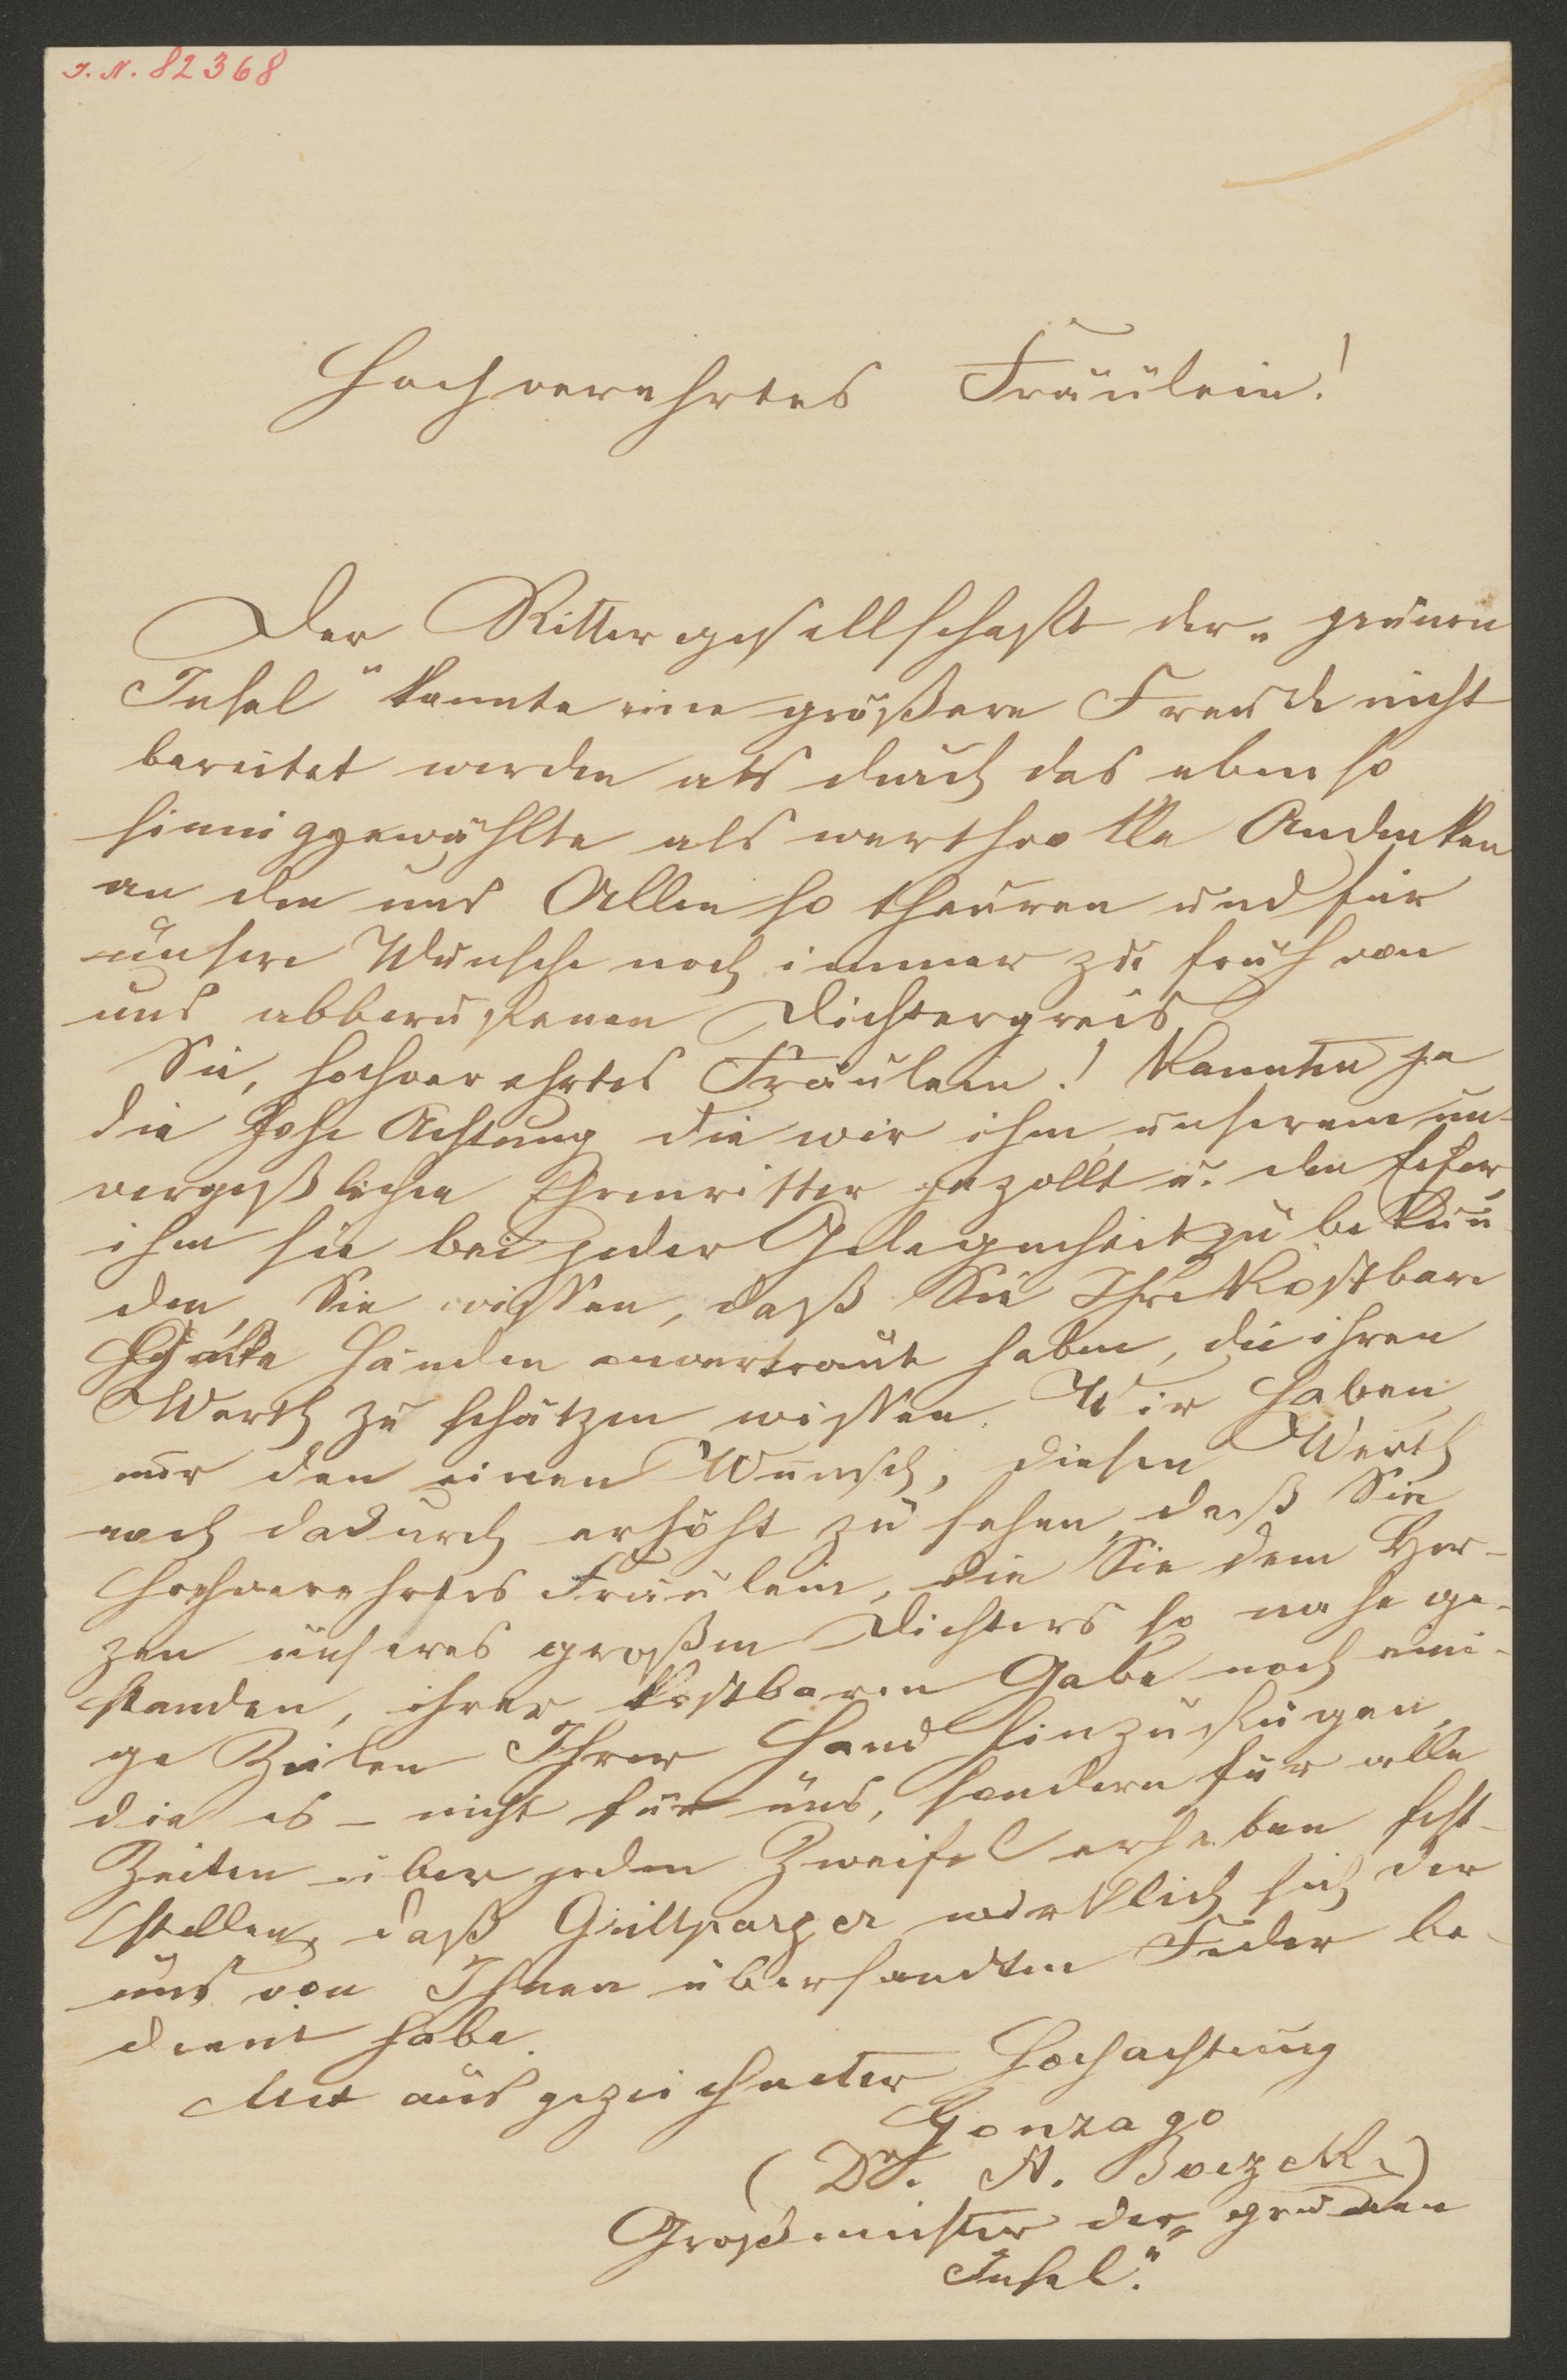 I. N. 82368
Hochverehrtes Fräulein!
Der Rittergesellschaft der „grünen
Insel" konnte eine größere Freude nicht
bereitet werden als durch das ebenso
sinniggewählte als werthvolle Andenken
an den uns Allen so theuren und für
unsere Wünsche noch immer zu früh von
uns abberufenen Dichtergreis.
Sie, hochverehrtes Fräulein! kannten ja
die hohe Achtung die wir ihm, unserem un-
vergeßlichen Ehrenritter gezollt u. den Eifer,
ihm sie bei jeder Gelegenheit zu bekun-
den, Sie wissen, daß Sie Ihre kostbare
Händen anvertraut haben, die ihren
Werth zu schätzen wissen. Wir haben
nur den einen Wunsch, diesen Werth
noch dadurch erhöht zu sehen, daß Sie
hochverehrtes Fräulein, die Sie dem Her-
zen unseres großen Dichters so nahe ge-
standen, ihrer kostbaren Gabe noch eini-
ge Zeilen Ihrer Hand hinzufügen,
die es – nicht für uns, sondern für alle
Zeiten über jeden Zweifel erhaben fest-
stellen, daß Grillparzer wirklich sich der
uns von Ihnen übersandten Feder be-
dient habe.
Mit ausgezeichneter Hochachtung
Gonzago
(Dr. A. Boczek)
Großmeister der „grünen
Insel."